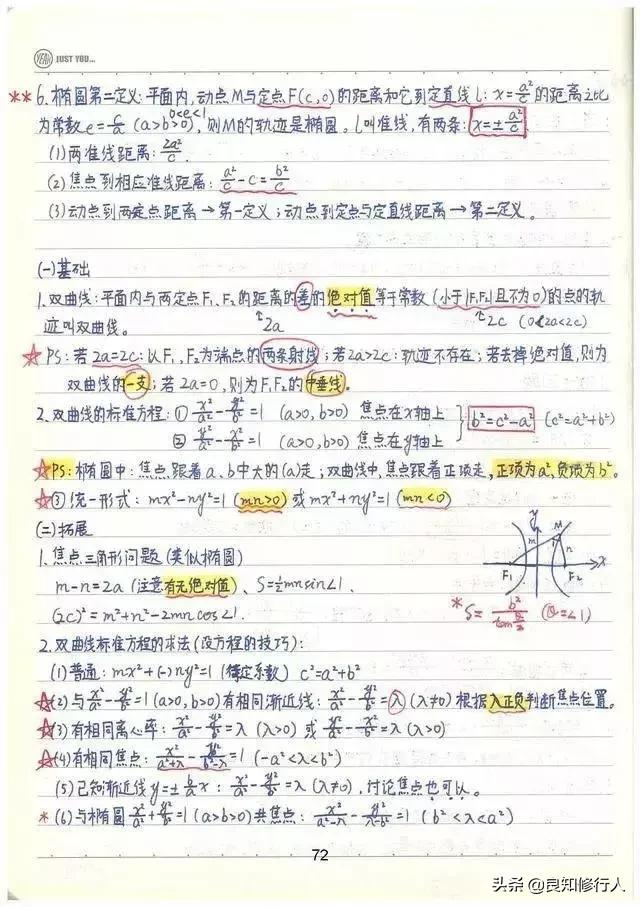 YEAH JUST YOU...
** 6. 椭圆第二定义: 平面内, 动点M与定点F(c,0)的距离和它到定直线 l: x=a²/c 的距离之比
为常数e=c/a (a>b>0), 0<e<1 则M的轨迹是椭圆。l叫准线, 有两条: x=±a²/c
(1) 两准线距离: 2a²/c.
(2) 焦点到相应准线距离: a²/c-c=b²/c
(3) 动点到两定点距离→第一定义; 动点到定点与定直线距离→第二定义。
(一)基础
1. 双曲线: 平面内与两定点F₁、F₂的距离的差的绝对值等于常数(小于|F₁F₂|且不为0)的点的轨
迹叫双曲线。 ↑2a ↑2c (0<2a<2c)
☆ PS: 若2a=2c: 以F₁、F₂为端点的两条射线; 若2a>2c: 轨迹不存在; 若去掉绝对值, 则为
双曲线的一支; 若2a=0, 则为F₁F₂的中垂线。
2. 双曲线的标准方程: ① x²/a²-y²/b²=1 (a>0,b>0) 焦点在x轴上
② y²/a²-x²/b²=1 (a>0,b>0) 焦点在y轴上 } b²=c²-a² (c²=a²+b²)
☆PS: 椭圆中: 焦点跟着a、b中大的(a)走; 双曲线中, 焦点跟着正项走, 正项为a², 负项为b²。
☆③统一形式: mx²-ny²=1 (mn>0) 或 mx²+ny²=1 (mn<0)
(二)拓展
1. 焦点三角形问题(类似椭圆)
m-n=2a (注意有无绝对值)、S=½mnsin∠1.
(2c)²=m²+n²-2mncos∠1.
y M m 1 n F₁ F₂ x
*S=b²/tan θ/2 (θ=∠1)
2. 双曲线标准方程的求法(设方程的技巧):
(1) 普通: mx²+(-)ny²=1 (待定系数) c²=a²+b²
☆(2) 与x²/a²-y²/b²=1(a>0,b>0)有相同渐近线: x²/a²-y²/b²=λ(λ≠0) 根据λ正负判断焦点位置。
☆(3) 有相同离心率: x²/a²-y²/b²=λ (λ>0) 或 y²/a²-x²/b²=λ(λ>0)
☆(4) 有相同焦点: x²/a²+λ-y²/b²-λ=1 (-a²<λ<b²)
(5) 已知渐近线y=±b/a x: x²/a²-y²/b²=λ(λ≠0), 讨论焦点也可以。
*(6) 与椭圆x²/a²+y²/b²=1(a>b>0)共焦点: x²/a²-λ-y²/λ-b²=1 (b²<λ<a²)
72
头条 @良知修行人